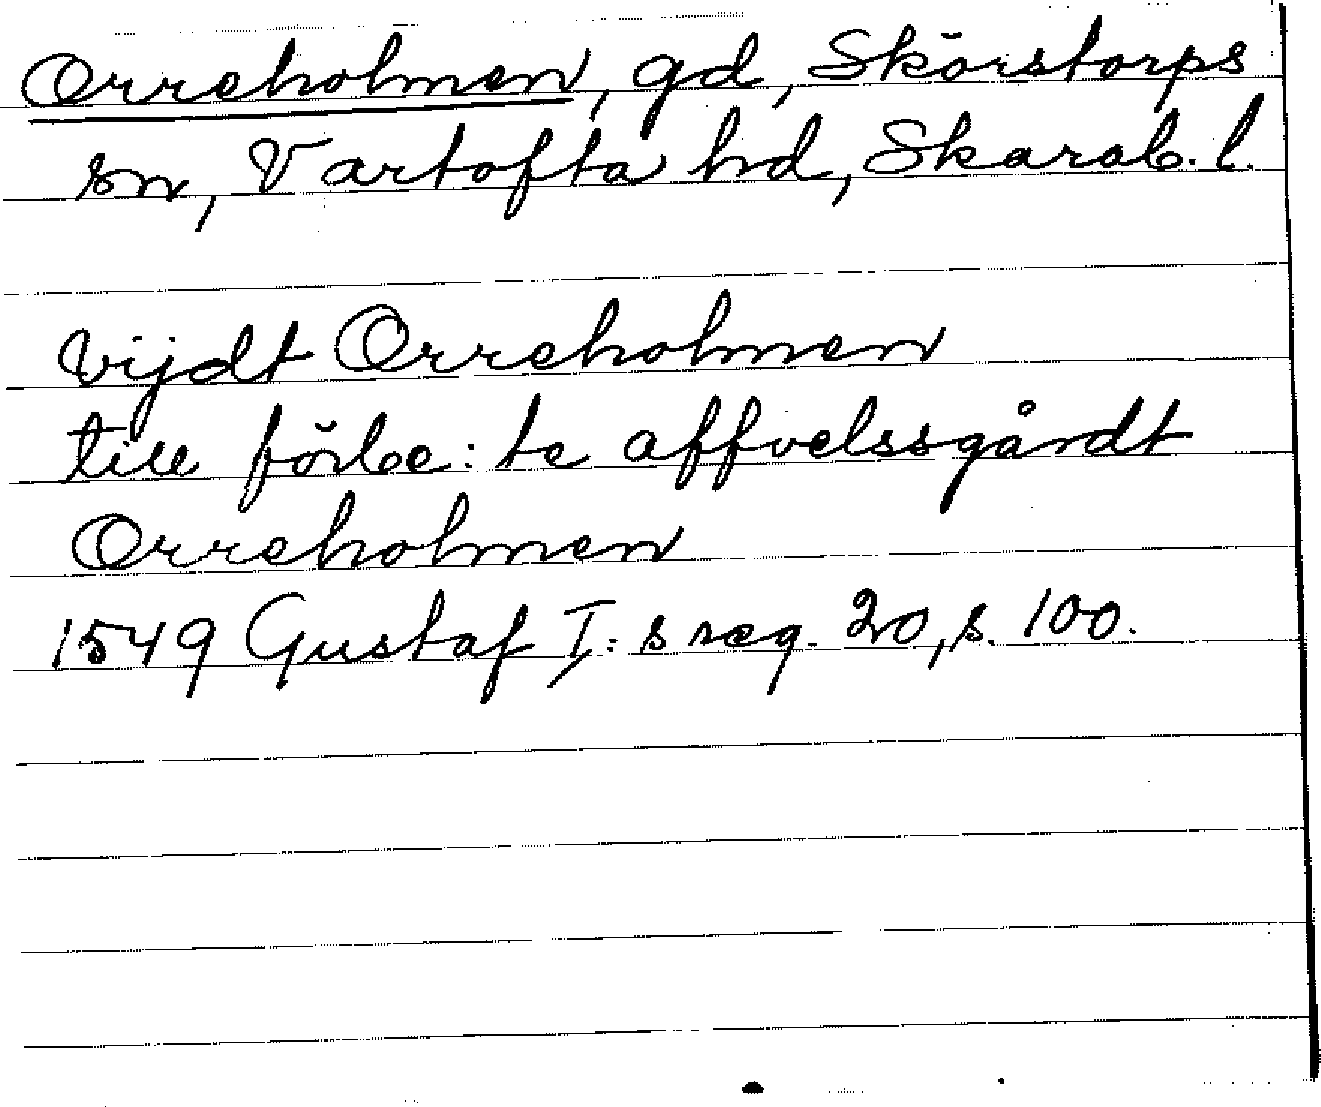 Orreholmen, gd, Skörstorps
sn, Vartofta hd, Skarab. l.
vijdt Orreholmen
till förbe: te affvelssgårdt
Orreholmen
1549 Gustaf I: s reg. 20, s. 100.